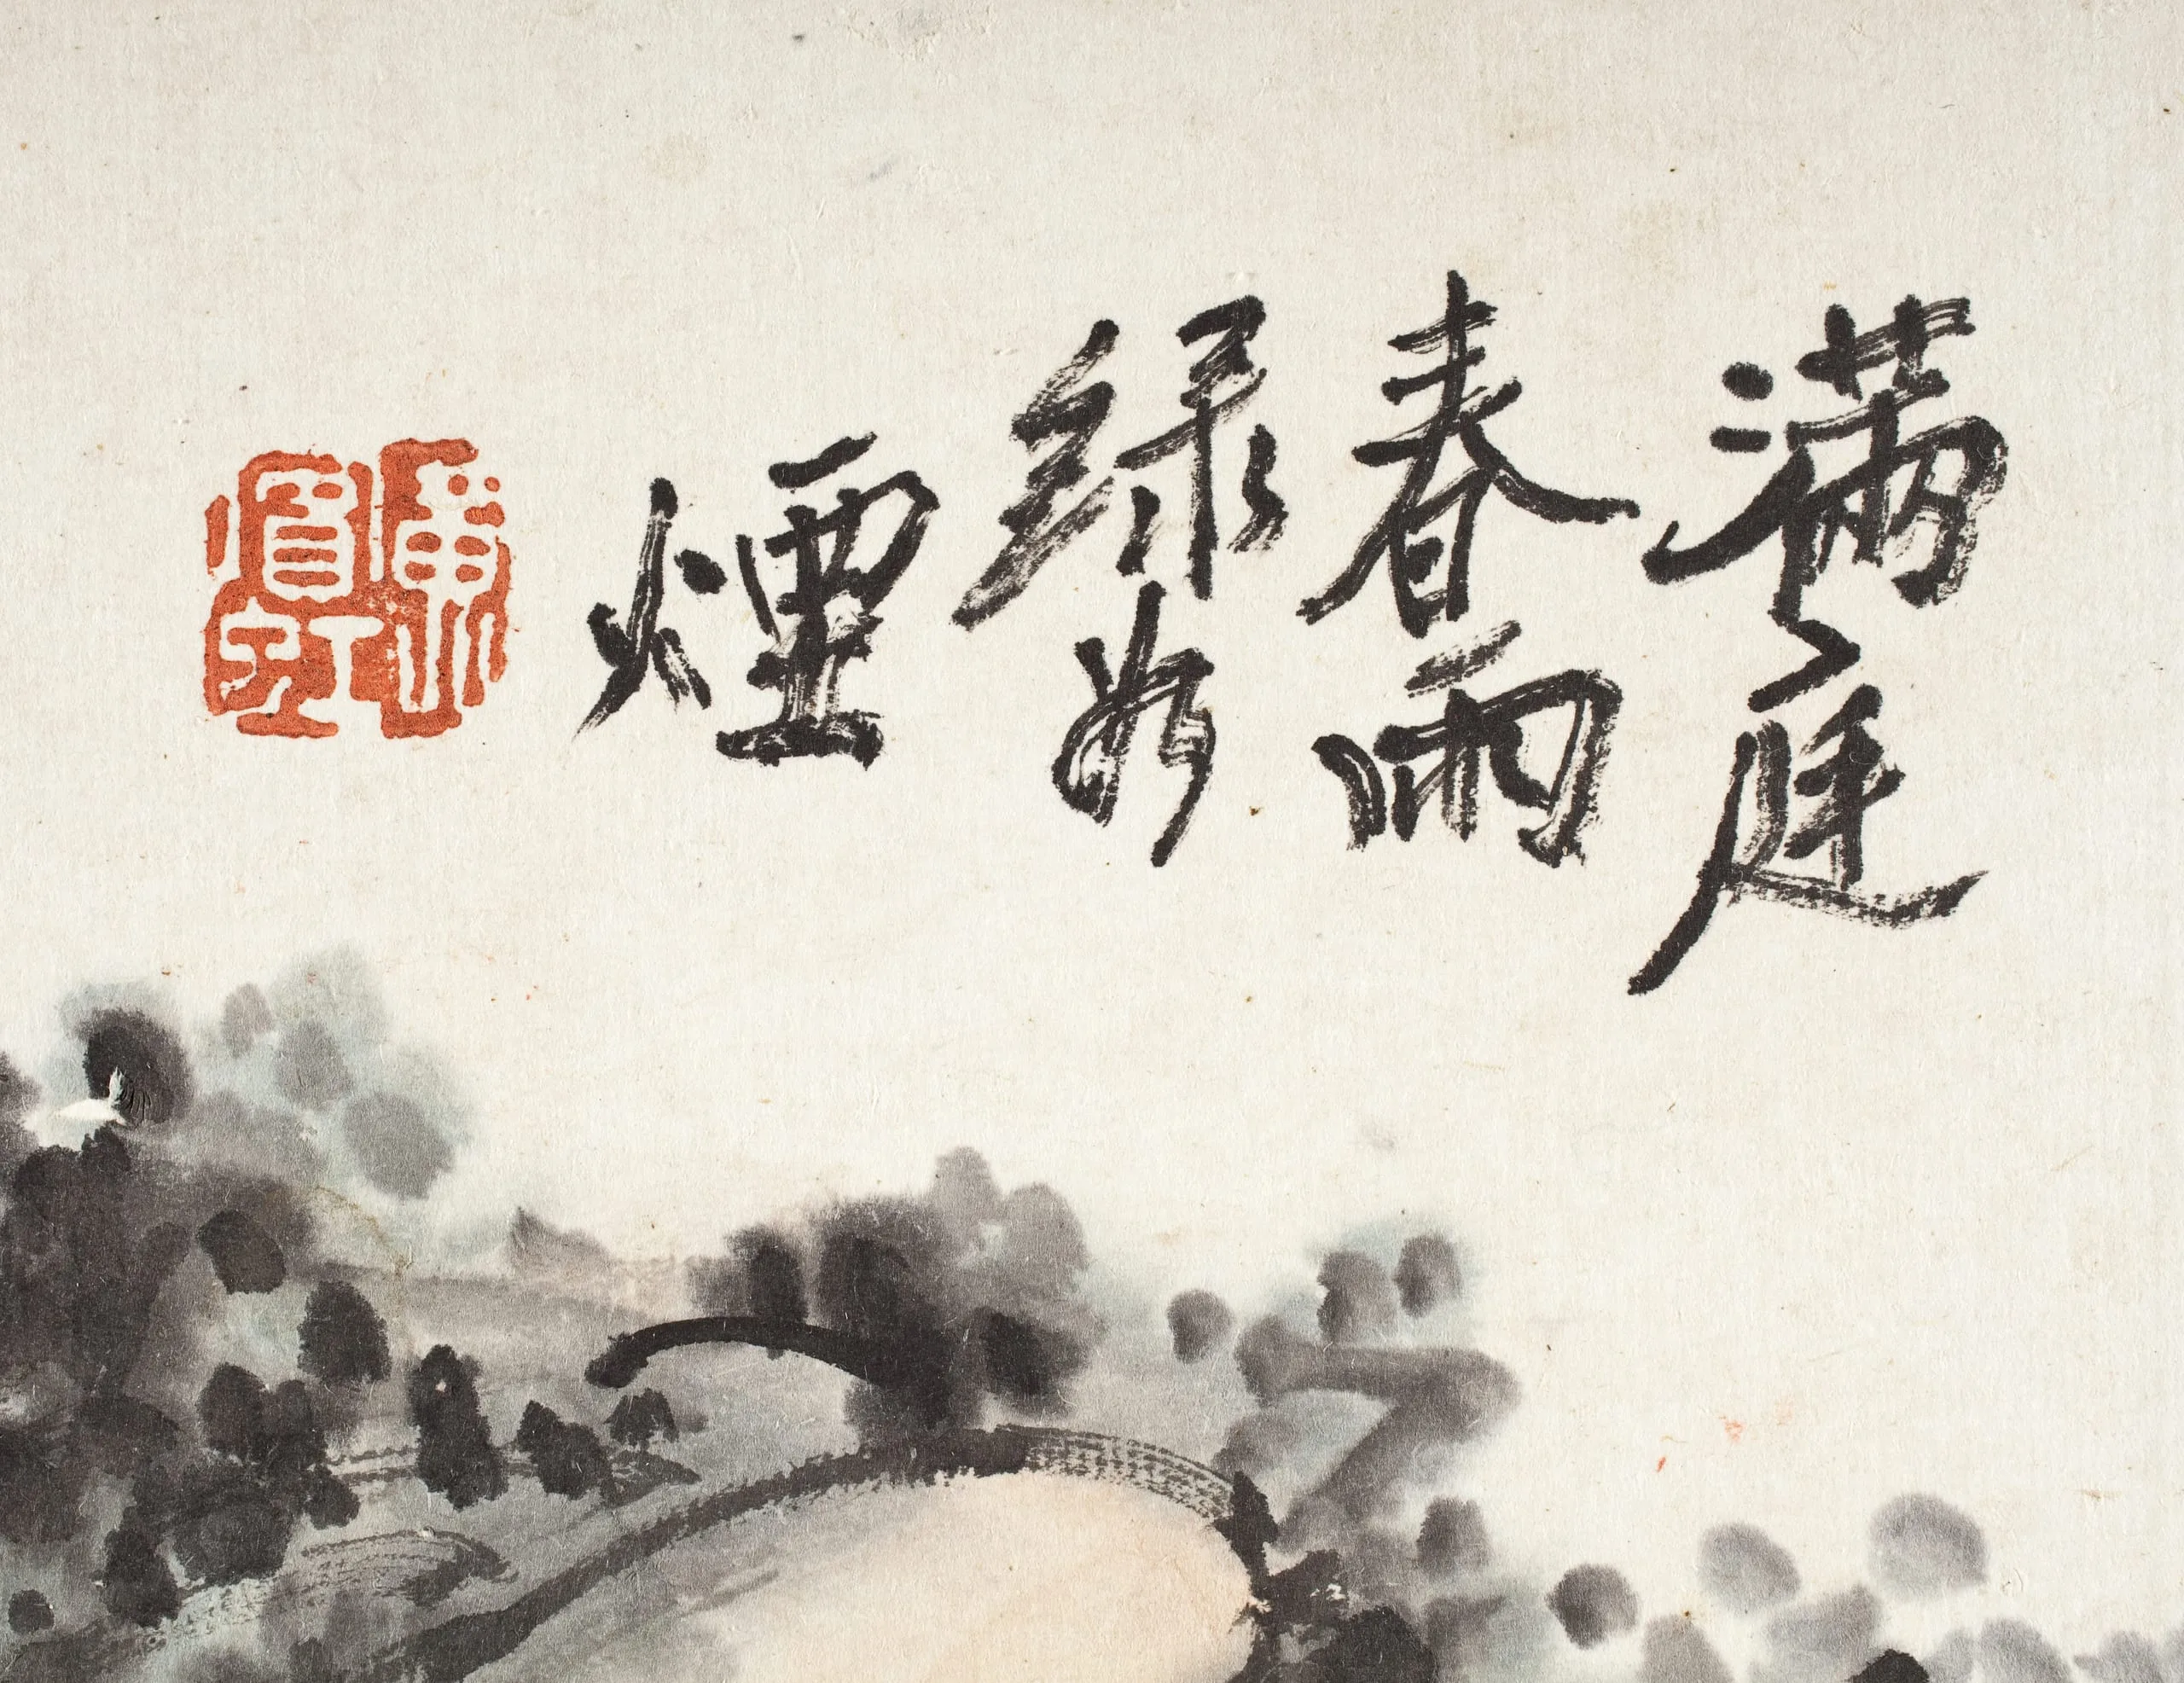 滿庭
春雨
綠如
煙